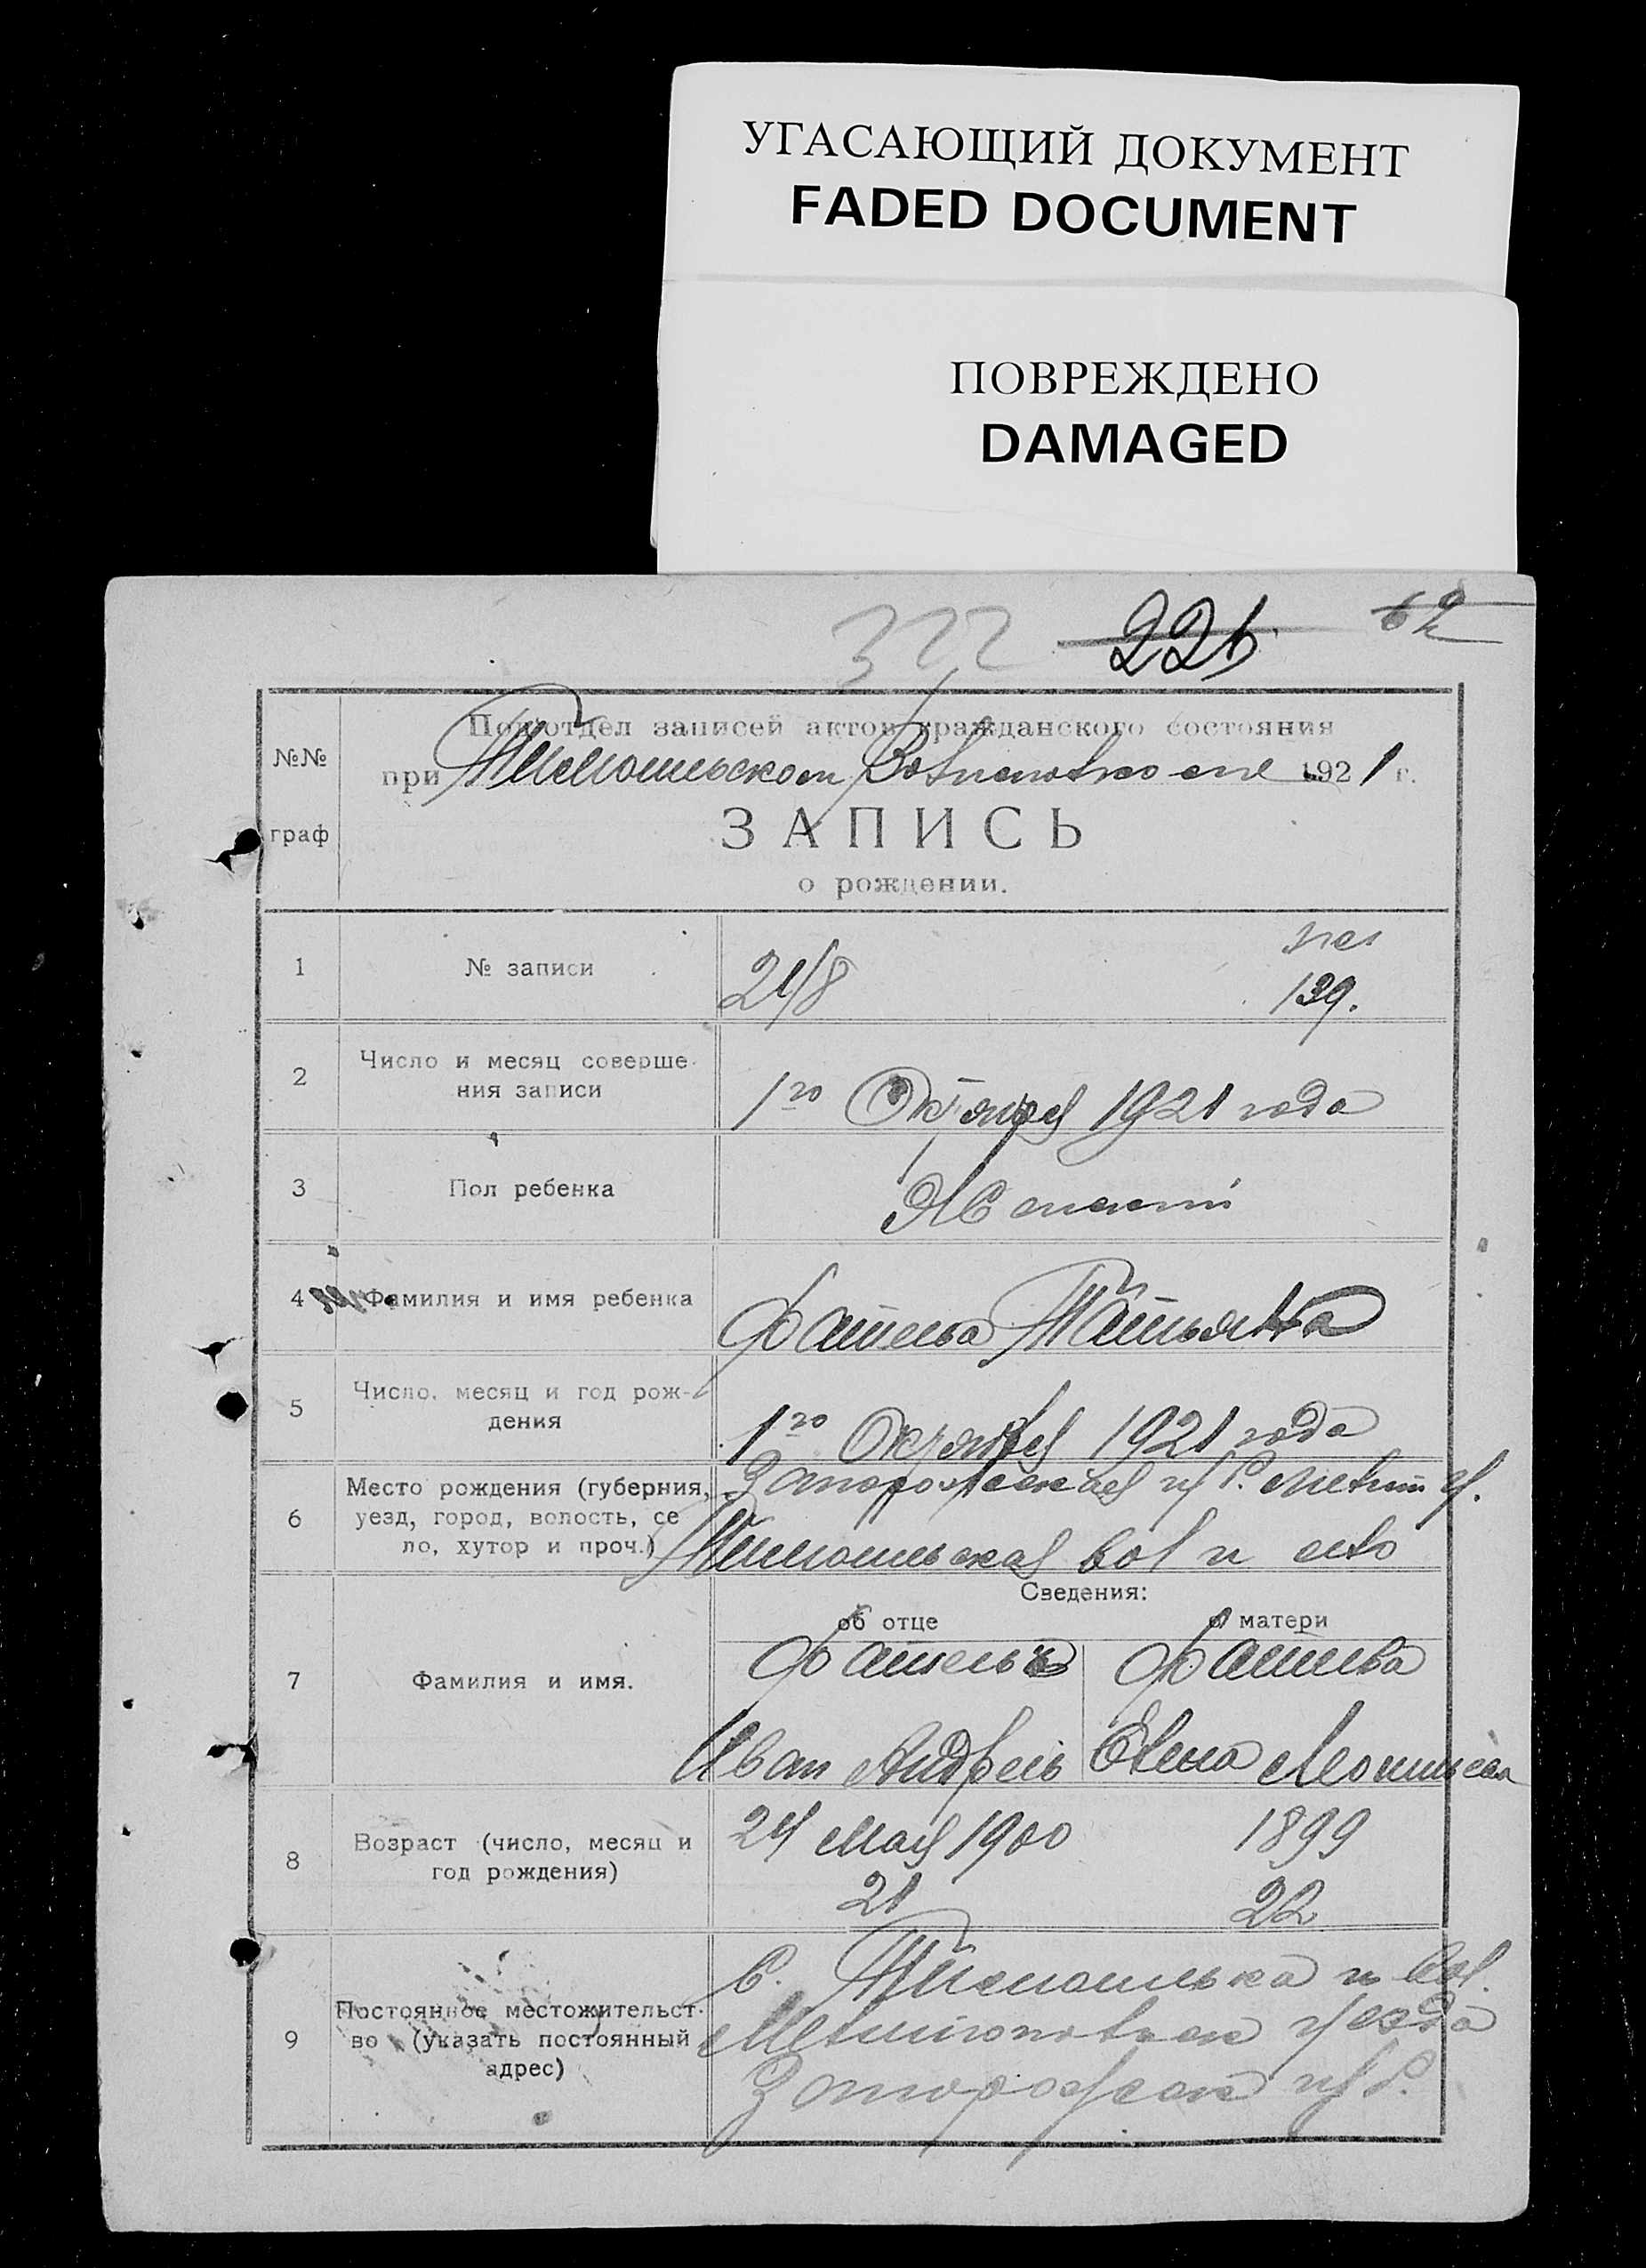 УГАСАЮЩИЙ ДОКУМЕНТ
FADED DOCUMENT
ПОВРЕЖДЕНО
DAMAGED
322 226
№№ граф
Подотдел записей актов гражданского состояния
при Тимошевском 1921 г.
ЗАПИСЬ
о рождении.
1 № записи 21/8 139.
2 Число и месяц соверше-
ния записи 1го Октября 1921 года
3 Пол ребенка Женский
4 Фамилия и имя ребенка Фатеева Татьяна
5 Число, месяц и год рож-
дения 1го Октября 1921 года
6 Место рождения (губерния,
уезд, город, волость, се
ло, хутор и проч.)
Запорожская губ. Мелит у.
вол и село
Сведения:
об отце о матери
7 Фамилия и имя.
Фатеев Фатеева
Иван Андреев Елена
8 Возраст (число, месяц и
год рождения)
24 мая 1900 1899
21 22
9 Постоянное местожительст-
во (указать постоянный
адрес)
С. и вол.
Мелитопольск уезда
Запорожск губ.